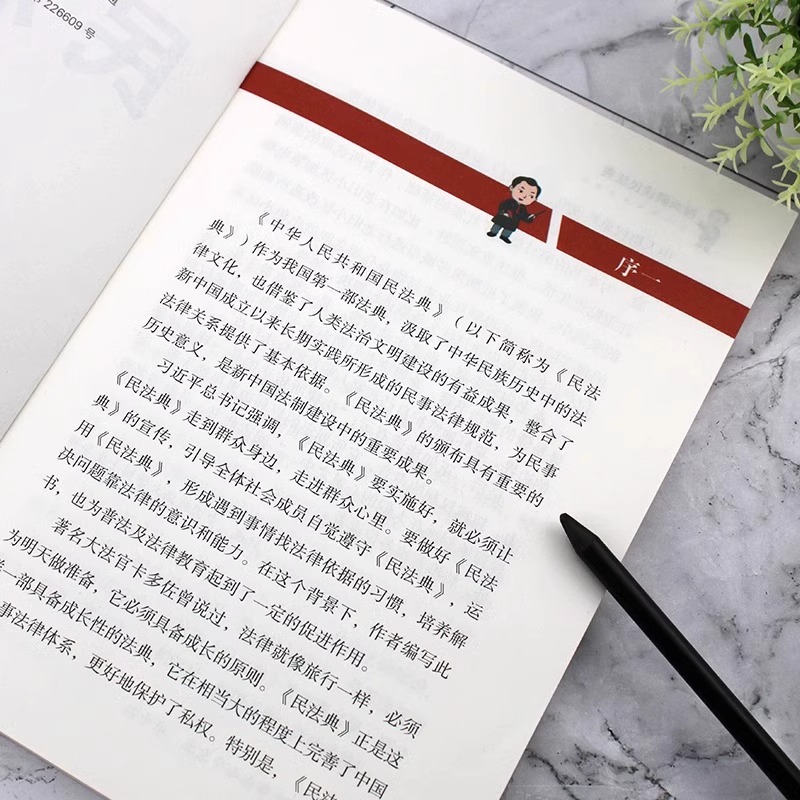 226609 号
序一
《中华人民共和国民法典》(以下简称为《民法
典》)作为我国第一部法典,汲取了中华民族历史中的法
律文化,也借鉴了人类法治文明建设的有益成果,整合了
新中国成立以来长期实践所形成的民事法律规范,为民事
法律关系提供了基本依据。《民法典》的颁布具有重要的
历史意义,是新中国法制建设中的重要成果。
习近平总书记强调,《民法典》要实施好,就必须让
《民法典》走到群众身边,走进群众心里。要做好《民法
典》的宣传,引导全体社会成员自觉遵守《民法典》,运
用《民法典》,形成遇到事情找法律依据的习惯,培养解
决问题靠法律的意识和能力。在这个背景下,作者编写此
书,也为普法及法律教育起到了一定的促进作用。
著名大法官卡多佐曾说过,法律就像旅行一样,必须
为明天做准备,它必须具备成长的原则。《民法典》正是这
一部具备成长性的法典,它在相当大的程度上完善了中国
事法律体系,更好地保护了私权。特别是,《民法